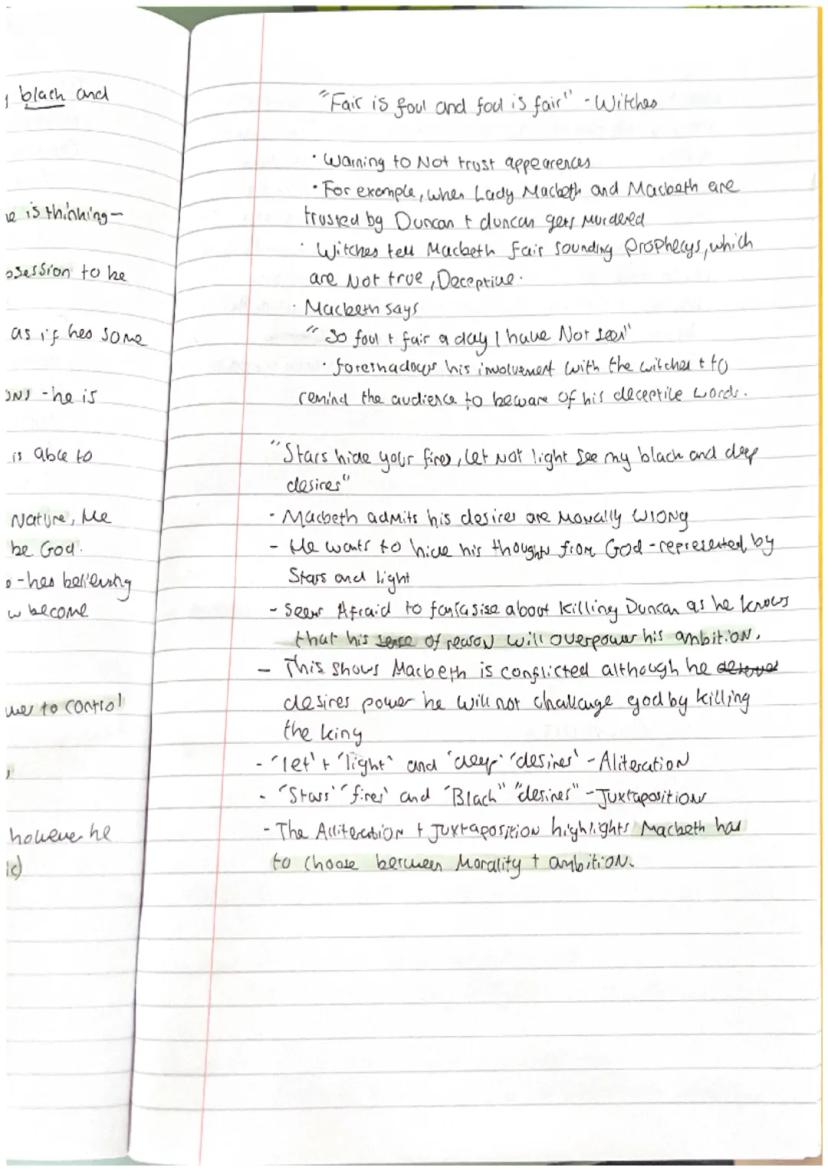 black and
e is thinking-
session to be
as if hes some
ons - he is
is able to
Nature, Me
be God.
- hes believing
w become
wer to control
howeve he
"Fair is foul and foul is fair" - Witches
· Warning to Not trust appearences
· For example, when Lady Macbeth and Macbeth are
trusted by Duncan + duncan gets Murdered
· Witches tell Macbeth fair sounding prophecys, which
are Not true, Deceptive.
· Macbeth says
"So foul + fair a day I have Not seen"
· foreshadows his involvement with the witches + to
remind the audience to beware of his deceptive words.
"Stars hide your fires, let Not light See my black and deep
desires"
- Macbeth admits his desires are Morally wrong
- He wants to hide his thoughts from God - represented by
Stars and light
- Seems Afraid to fantasise about killing Duncan as he knows
that his sense of reason will overpower his ambition.
- This shows Macbeth is conflicted although he
desires power he will not challenge god by killing
the king
- 'let' + 'light' and 'deep' 'desires' - Aliteration
- "Stars" "fires" and "Black" "desires" - Juxtaposition
- The Alliteration + Juxtaposition highlights Macbeth has
to choose between Morality + ambition.